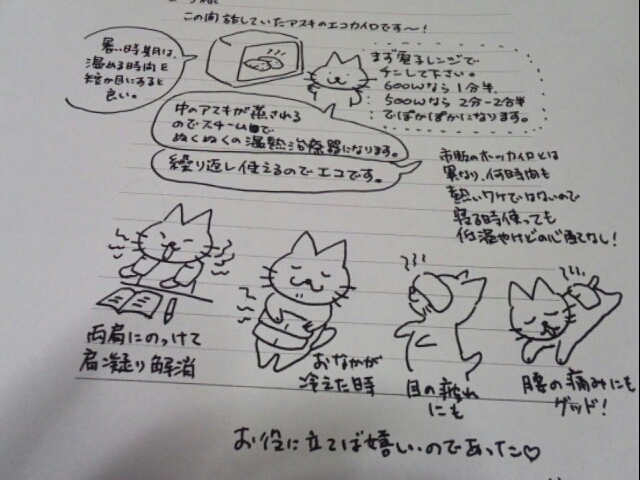 この間話していたアズキのエコカイロです〜!
暑い時期は、
温める時間を
短か目にすると
良い。
まず電子レンジで
チンして下さい。
600Wなら1分半
500Wなら2分-2分半
でぽかぽかになります。
中のアズキが蒸される
のでスチーム
ぬくぬくの温熱治療器になります。
繰り返し使えるのでエコです。
市販のホッカイロとは
異なり、何時間も
熱いワケではないので
寝る時使っても
低温やけどの心配なし!
両肩にのっけて
肩凝り解消
おなかが
冷えた時
目の疲れ
にも
腰の痛みにも
グッド!
お役に立てば嬉しいのであった♡